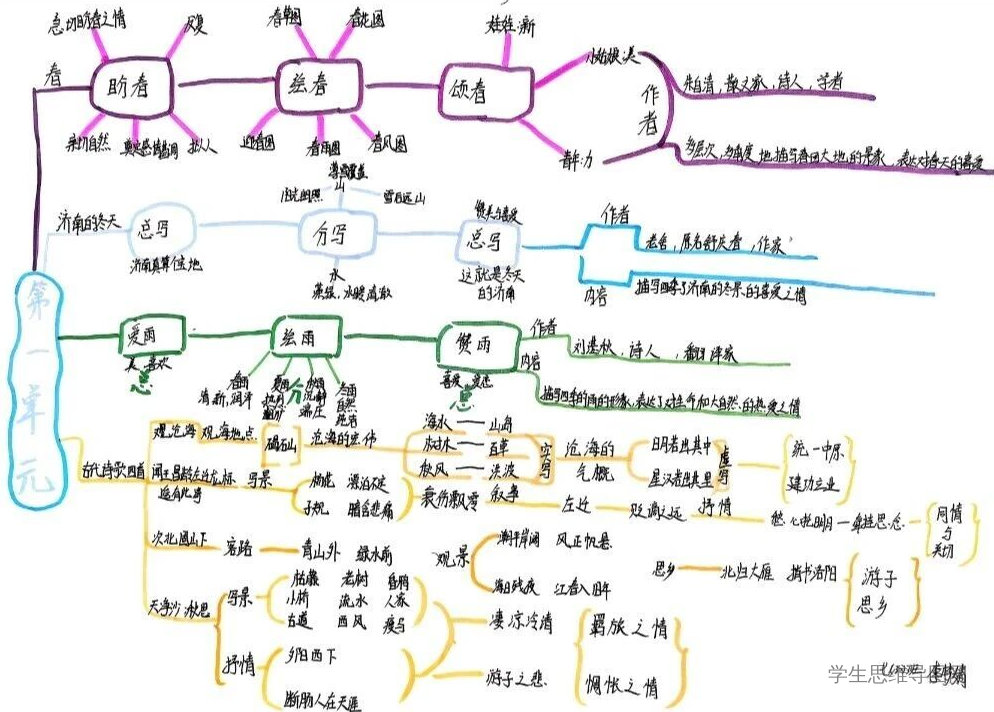 第一单元
春
盼春
急切盼春之情
反复
亲切自然
奠定感情基调
拟人
绘春
春草图
春花图
迎春图
春雨图
春风图
颂春
娃娃:新
小姑娘:美
青年:力
作者
朱自清,散文家,诗人,学者
多层次,多角度地描写春回大地的景象,表达对春天的喜爱
济南的冬天
总写
济南真算个宝地
分写
薄雪覆盖
山
阳光朗照
雪后远山
水
蒸绿,水暖清澈
总写
赞美与喜爱
这就是冬天
的济南
作者
老舍,原名舒庆春,作家
内容
描写四季了济南的冬景的喜爱之情
爱雨
美,喜欢
总
绘雨
春雨
清新,润泽
夏雨
热烈
粗犷
分
秋雨
沉静
端庄
冬雨
自然
纯洁
赞雨
喜爱,爱恋
总
作者
刘湛秋,诗人,翻译家
内容
描写四季的雨的形象,表达了对生命和大自然的热爱之情
古代诗歌四首
观沧海
观海地点
碣石山
沧海的宏伟
海水——山岛
树木——百草
秋风——洪波
实写
沧海的
气概
日月若出其中
星汉若出其里
虚写
统一中原
建功立业
闻王昌龄左迁龙标
遥有此寄
写景
杨花 漂泊不定
子规 暗含悲痛
哀伤飘零
叙事
左迁
贬谪之远
抒情
愁心托明月
牵挂思念
同情
与
关切
次北固山下
客路
青山外 绿水前
观景
潮平岸阔 风正帆悬
海日残夜 江春入旧年
思乡
北归大雁
捎书洛阳
游子
思乡
天净沙·秋思
写景
枯藤 老树 昏鸦
小桥 流水 人家
古道 西风 瘦马
抒情
夕阳西下
断肠人在天涯
凄凉冷清
游子之悲
羁旅之情
惆怅之情
学生思维导图